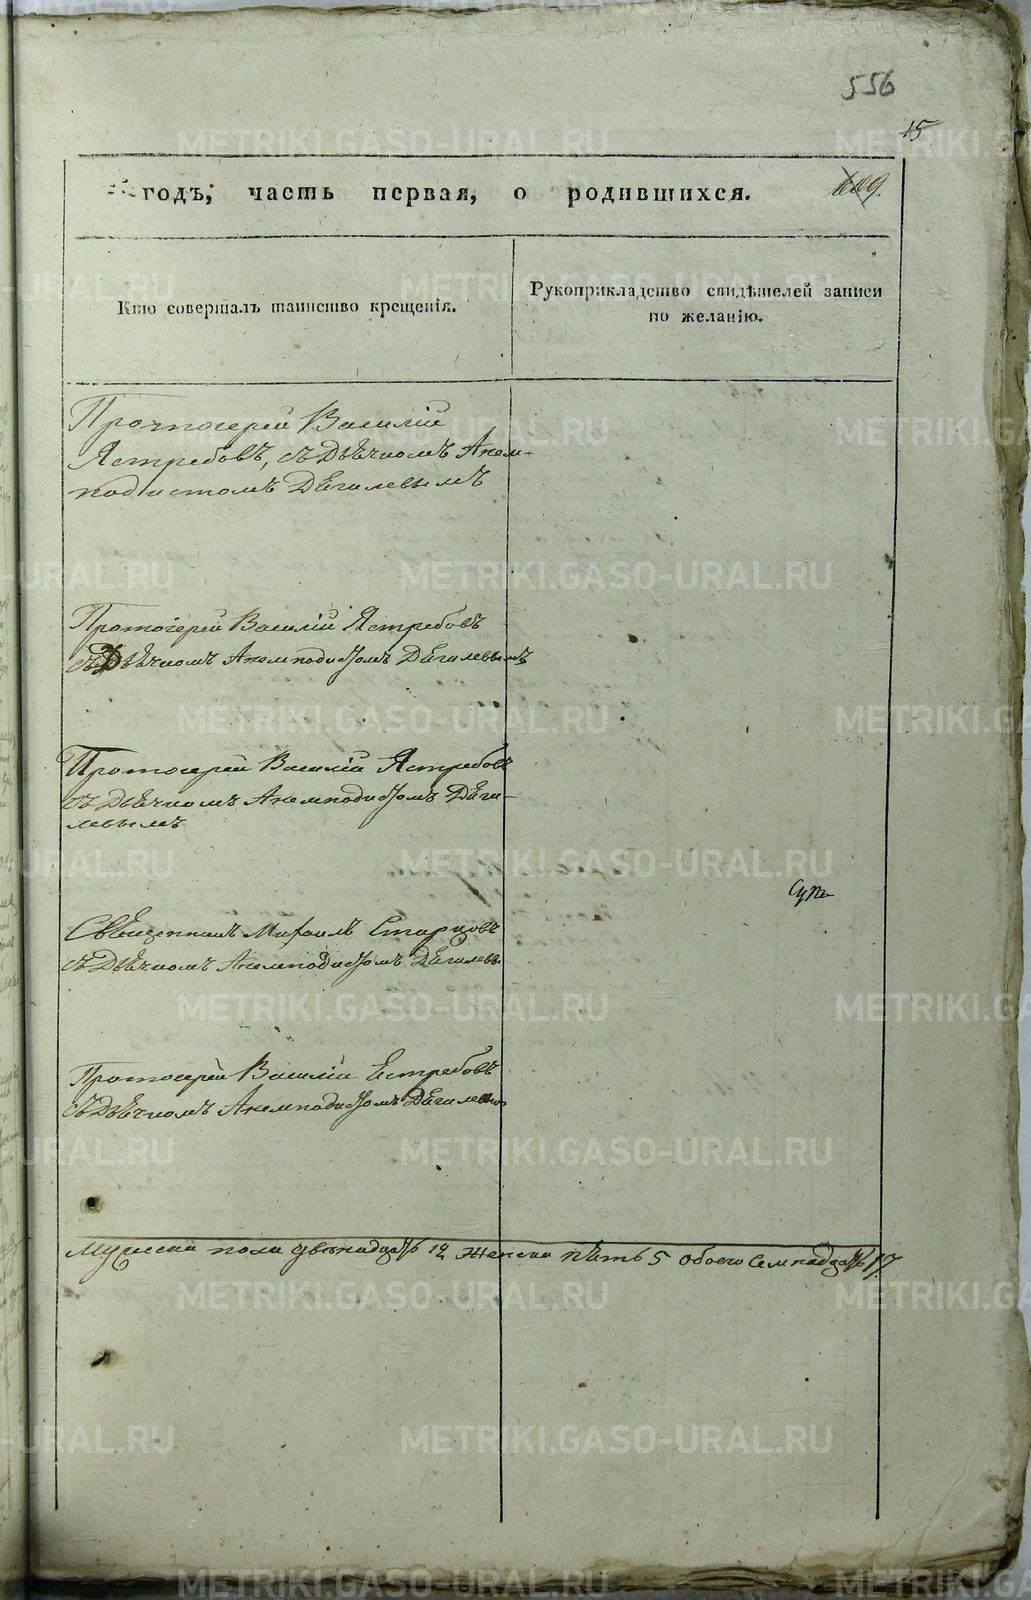 556
15
годъ, часть первая, о родившихся.
609.
Кто совершалъ таинство крещенія.
Рукоприкладство свидѣтелей записи
по желанію.
Протоіерей Василій
Ястребовъ, съ Дьячкомъ Анем-
подистомъ Дѣгилевымъ
Протоіерей Василій Ястребовъ
съ Дьячкомъ Анемподистомъ Дѣгилевымъ
Протоіерей Василій Ястребовъ
съ Дьячкомъ Анемподистомъ Дѣги-
левымъ
Священникъ Михаилъ Старцовъ
съ Дьячкомъ Анемподистомъ Дѣгилевы
Протоіерей Василій Естребовъ
съ Дьячкомъ Анемподистомъ Дѣгилевы
Мужеска пола двенадцать 12 женска пять 5 обоего семнадцать 17
METRIKI.GASO-URAL.RU